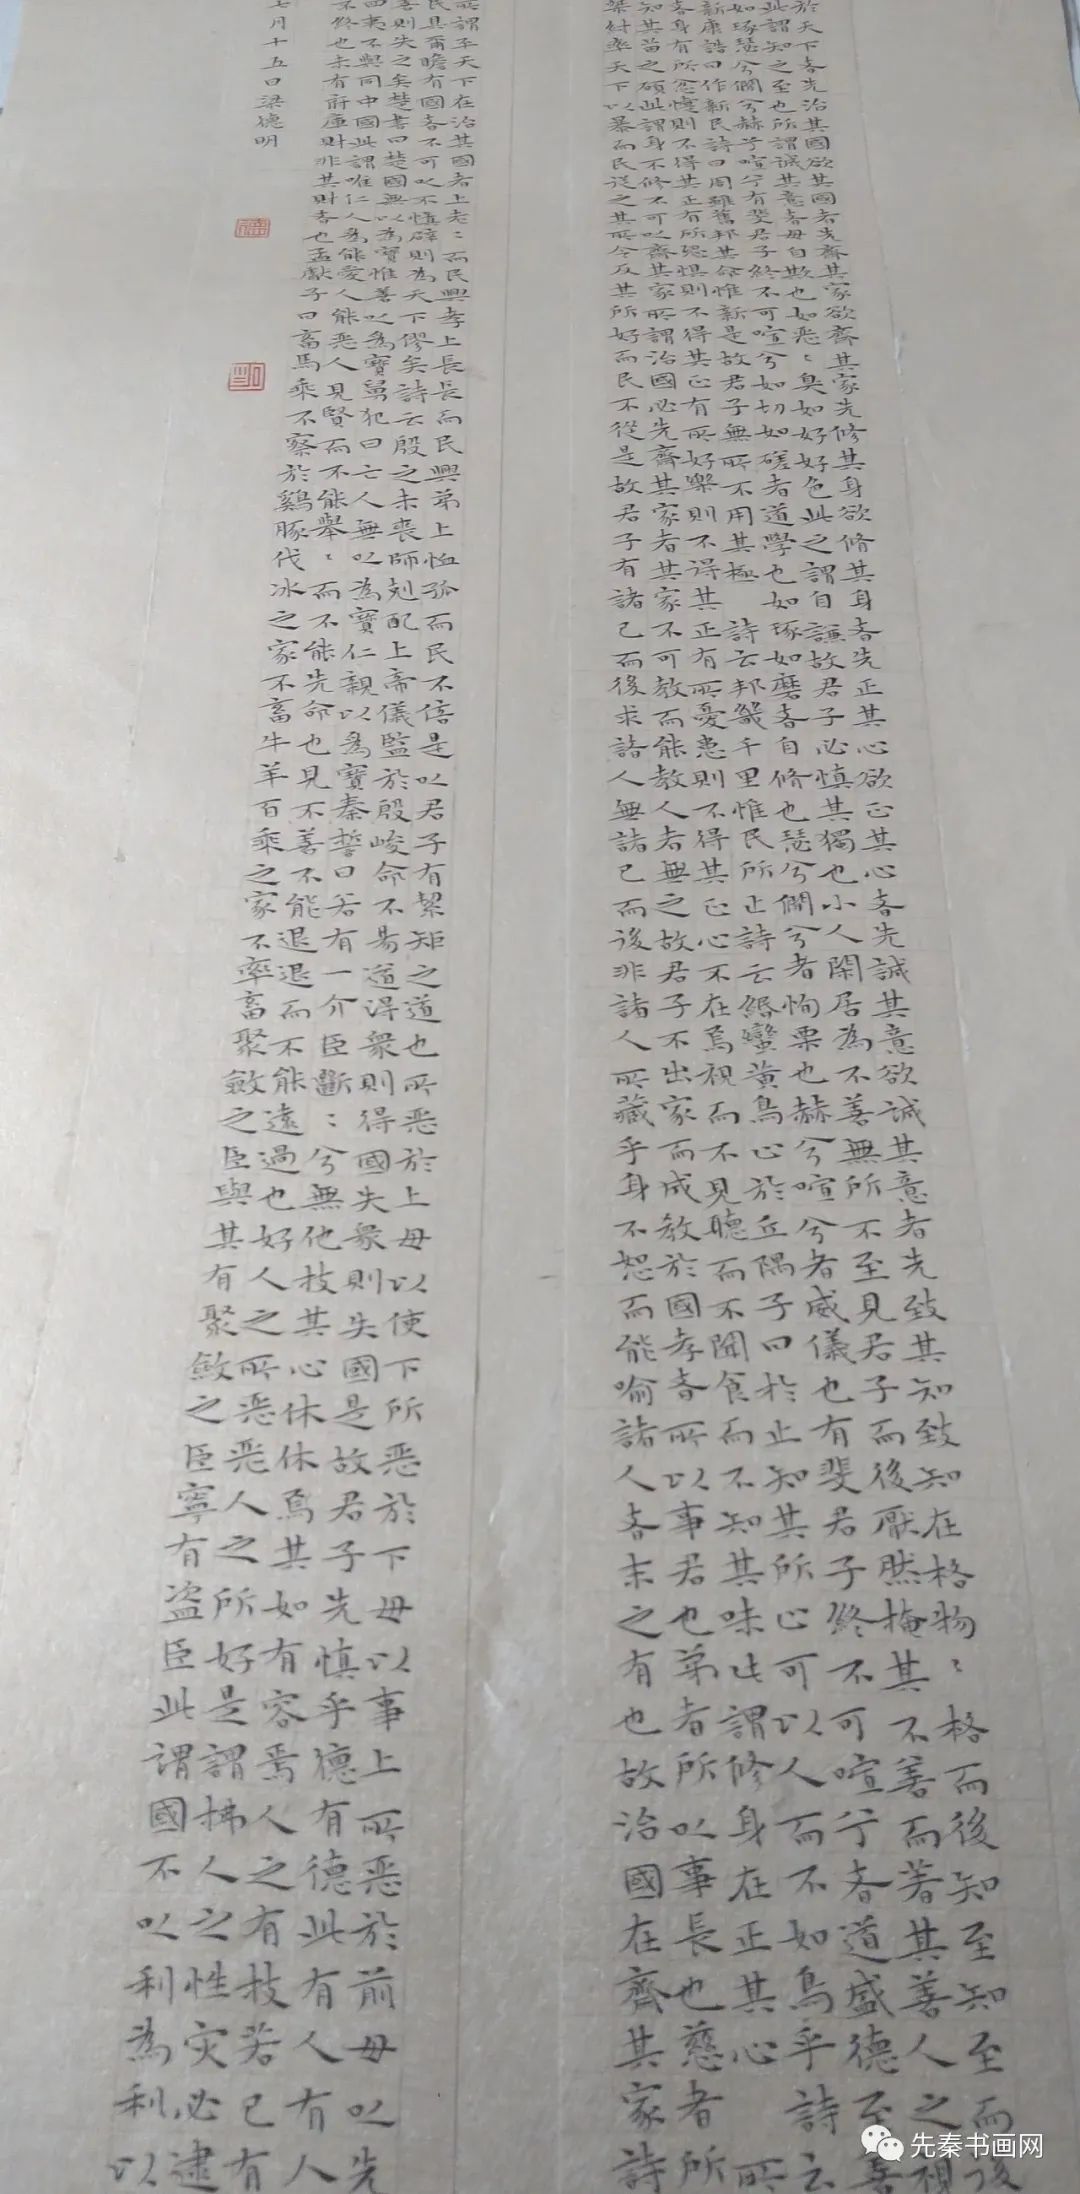 於天下者先治其國欲其國者先齊其家欲齊其家先修其身欲脩其身者先正其心欲正其心者先誠其意欲誠其意者先致其知致知在格物〻格而後知至知至而後
此謂知之至也所謂誠其意者毋自欺也如惡〻臭如好好色此之謂自謙故君子必慎其獨也小人閑居為不善無所不至見君子而後厭然掩其不善而著其善人之視
如琢瑟兮僩兮赫兮喧兮有斐君子終不可喧兮如切如磋者道學也如琢如磨者自脩也瑟兮僩兮者恂栗也赫兮喧兮者威儀也有斐君子終不可喧兮者道盛德至善
新康誥曰作新民詩曰周雖舊邦其命惟新是故君子無所不用其極 詩云邦畿千里惟民所止詩云緡蠻黃鳥止於丘隅子曰於止知其所止可以人而不如鳥乎 詩云
身有所忿懥則不得其正有所恐懼則不得其正有所好樂則不得其正有所憂患則不得其正心不在焉視而不見聽而不聞食而不知其味此謂修身在正其心 所
知其苗之碩此謂身不修不可以齊其家所謂治國必先齊其家者其家不可教而能教人者無之故君子不出家而成教於國孝者所以事君也弟者所以事長也慈者所
桀紂率天下以暴而民從之其所令反其所好而民不從是故君子有諸己而後求諸人無諸己而後非諸人所藏乎身不恕而能喻諸人者未之有也故治國在齊其家詩
所謂平天下在治其國者上老〻而民興孝上長長而民興弟上恤孤而民不倍是以君子有絜矩之道也所惡於上毋以使下所惡於下毋以事上所惡於前毋以先
民具爾瞻有國者不可以不慎辟則為天下僇矣詩云殷之未喪師剋配上帝儀監於殷峻命不易道得衆則得國失衆則失國是故君子先慎乎德有德此有人有人
善則失之矣楚書曰楚國無以為寶惟善以為寶舅犯曰亡人無以為寶仁親以為寶秦誓曰若有一介臣斷〻兮無他技其心休休焉其如有容焉人之有技若己有
四夷不與同中國此謂唯仁人為能愛人能惡人見賢而不能舉〻而不能先命也見不善不能退退而不能遠過也好人之所惡惡人之所好是謂拂人之性灾必逮
不終也未有府庫財非其財者也孟獻子曰畜馬乘不察於雞豚伐冰之家不畜牛羊百乘之家不率畜聚斂之臣與其有聚斂之臣寧有盜臣此謂國不以利為利以
七月十五日梁德明
先秦书画网